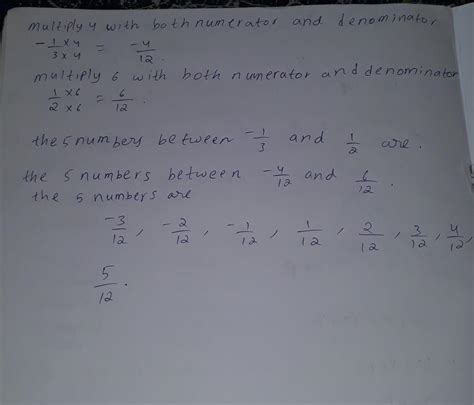 multiply 4 with both numerator and denominator
-1×4/3×4 = -4/12.
multiply 6 with both numerator and denominator
1×6/2×6 = 6/12.
the 5 numbers between -1/3 and 1/2 are.
the 5 numbers between -4/12 and 6/12.
the 5 numbers are
-3/12, -2/12, -1/12, 1/12, 2/12, 3/12, 4/12,
5/12.